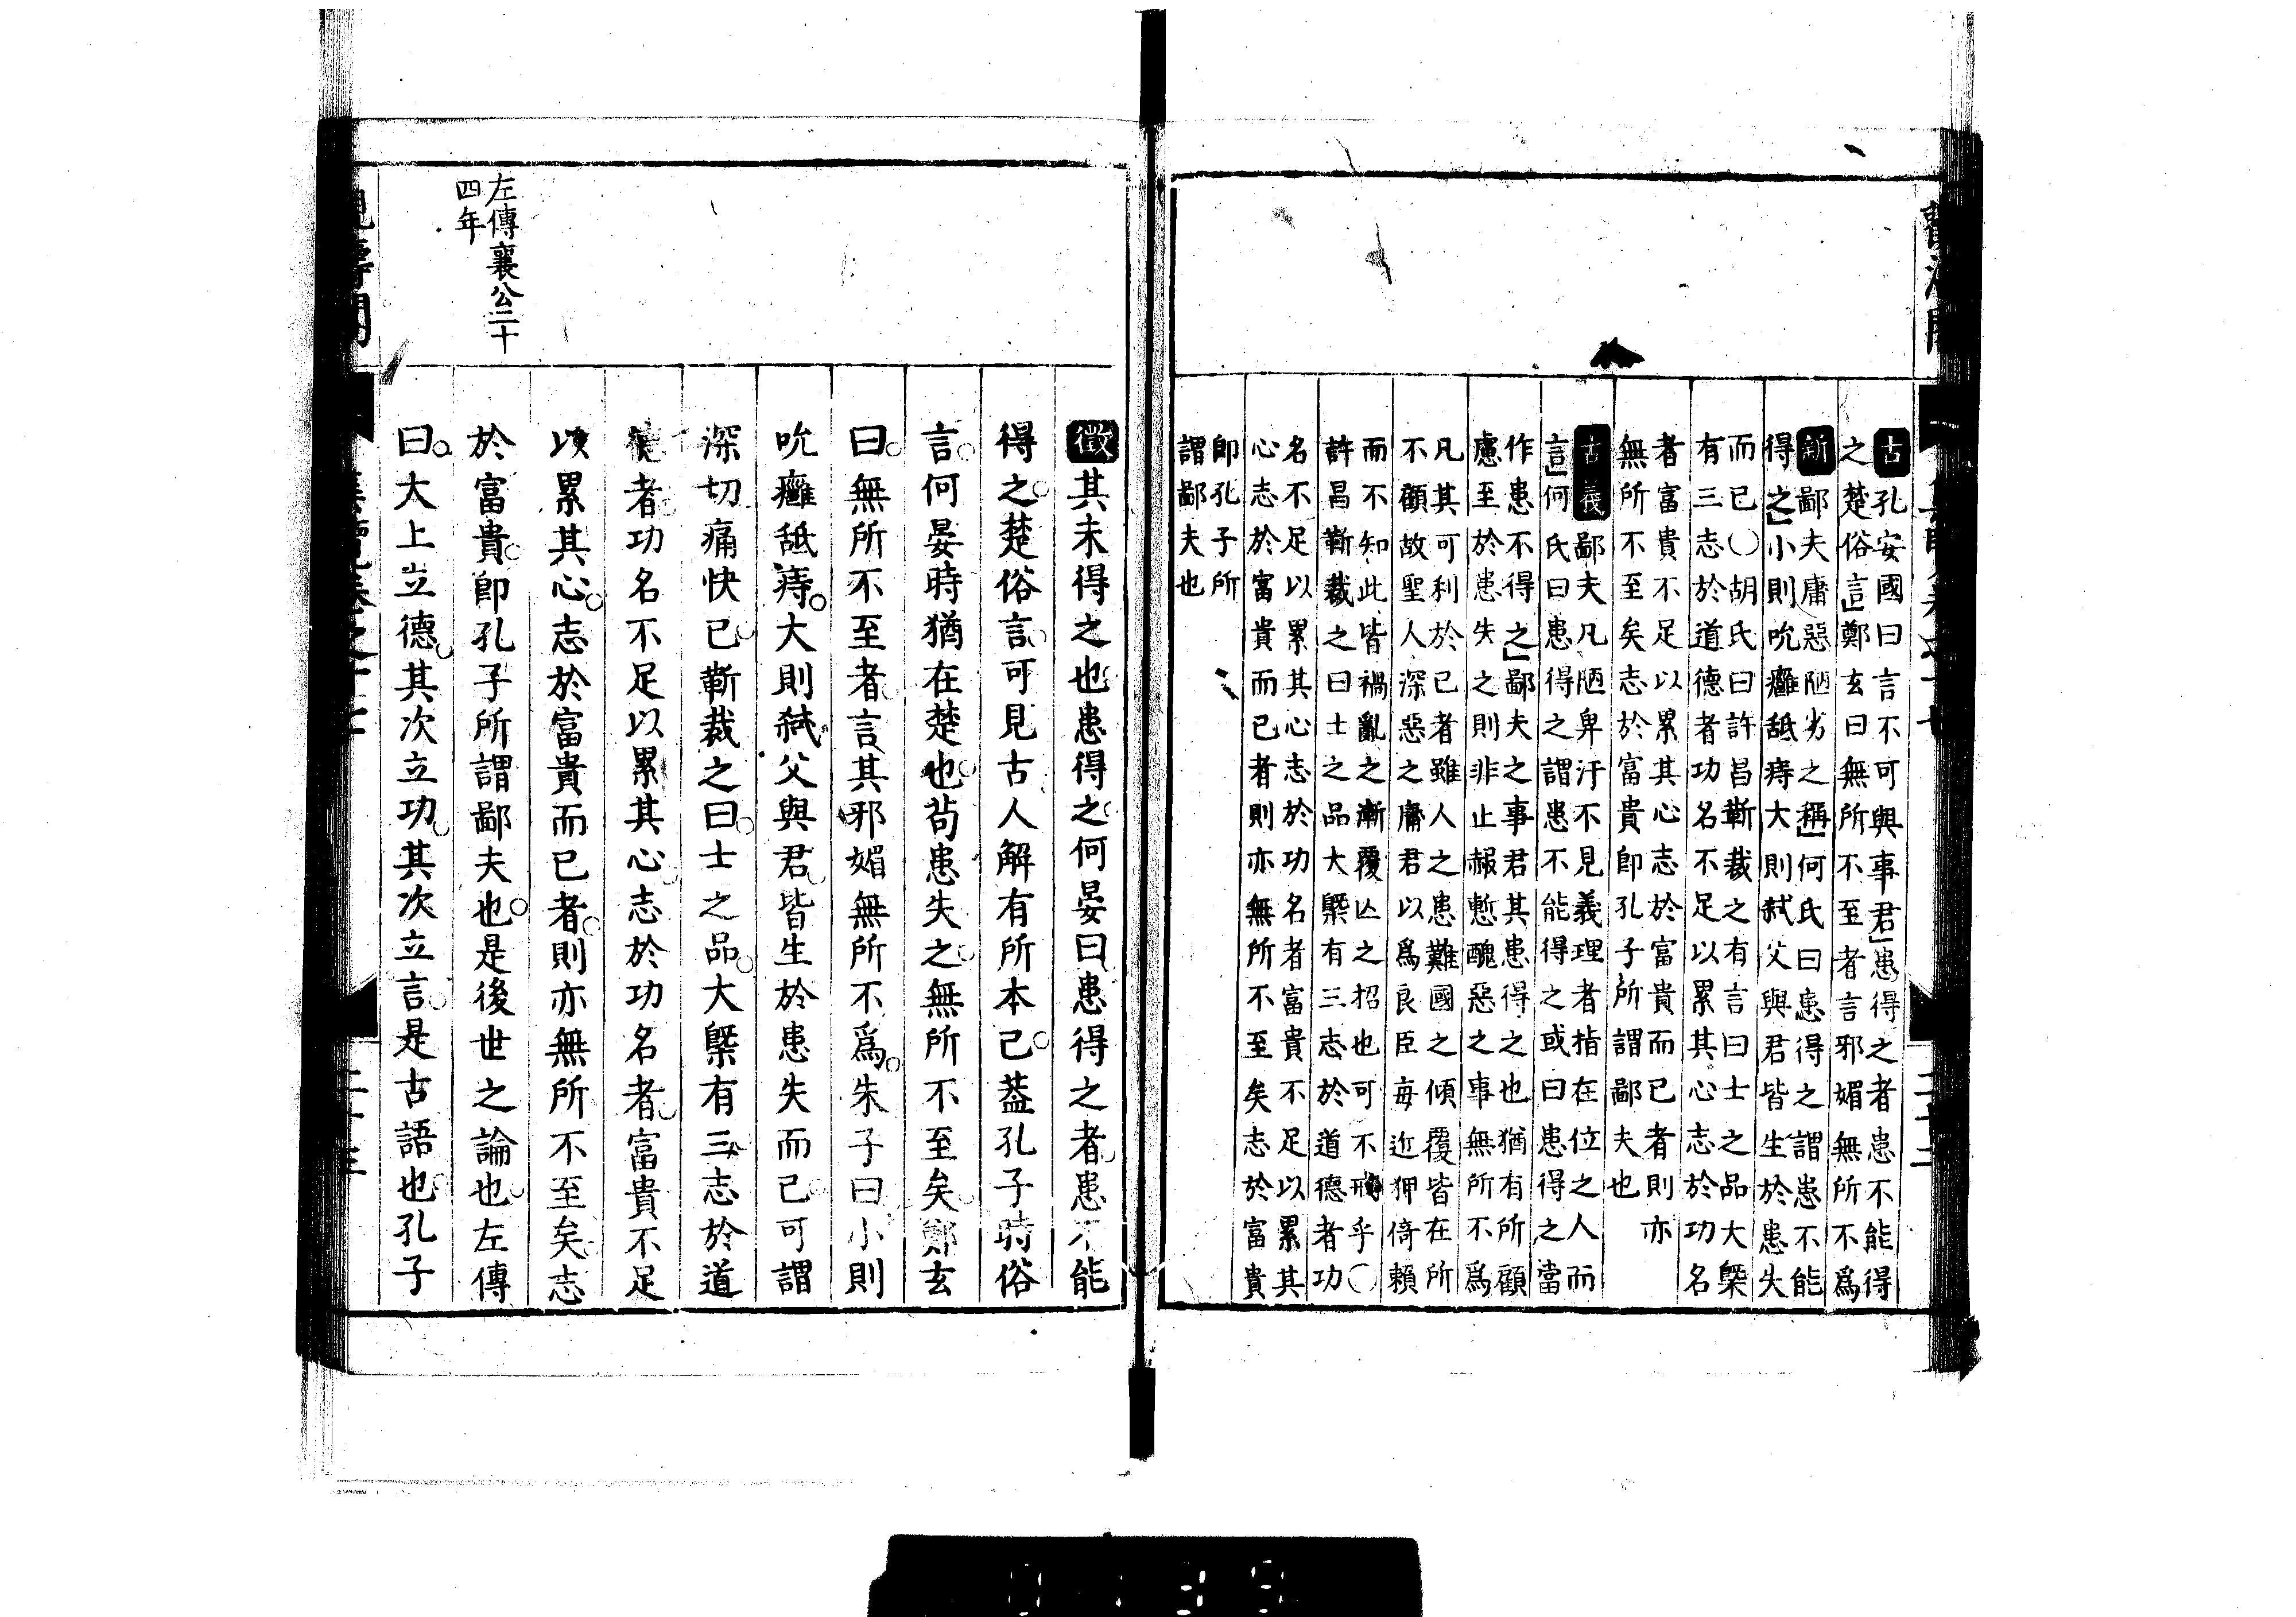 古孔安國曰言不可與事君」患得之者患不能得
之楚俗言」鄭玄曰無所不至者言邪媚無所不爲
新鄙夫庸惡陋劣之稱」何氏曰患得之謂患不能
得之」小則吮癰舐痔大則弑父與君皆生於患失
而已○胡氏曰許昌靳裁之有言曰士之品大槩
有三志於道德者功名不足以累其心志於功名
者富貴不足以累其心志於富貴而已者則亦
無所不至矣志於富貴即孔子所謂鄙夫也
古義鄙夫凡陋卑汙不見義理者指在位之人而
言」何氏曰患得之謂患不能得之或曰患得之當
作患不得之」鄙夫之事君其患得之也猶有所顧
慮至於患失之則非止赧慙醜惡之事無所不爲
凡其可利於已者雖人之患難國之傾覆皆在所
不顧故聖人深惡之庸君以爲良臣每近狎倚賴
而不知此皆禍亂之漸覆亡之招也可不戒乎○
許昌靳裁之曰士之品大槩有三志於道德者功
名不足以累其心志於功名者富貴不足以累其
心志於富貴而已者則亦無所不至矣志於富貴
即孔子所
謂鄙夫也
左傳襄公二十
四年
徵其未得之也患得之何晏曰患得之者患不能
得之楚俗言可見古人解有所本已葢孔子時俗
言何晏時猶在楚也苟患失之無所不至矣鄭玄
曰無所不至者言其邪媚無所不爲朱子曰小則
吮癰舐痔大則弑父與君皆生於患失而已可謂
深切痛快已靳裁之曰士之品大槩有三志於道
德者功名不足以累其心志於功名者富貴不足
以累其心志於富貴而已者則亦無所不至矣志
於富貴即孔子所謂鄙夫也是後世之論也左傳
曰大上立德其次立功其次立言是古語也孔子